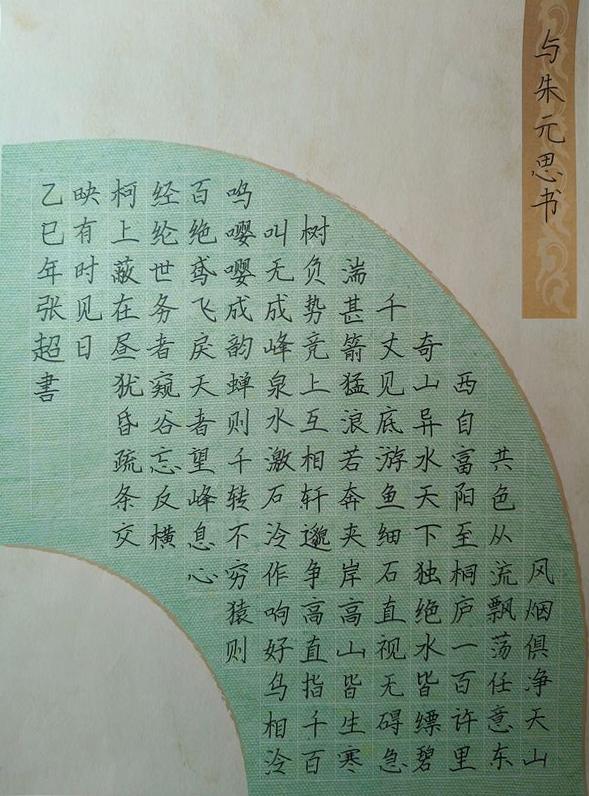 与朱元思书
风烟俱净天山
共色从流飘荡任意东
西自富阳至桐庐一百许里
奇山异水天下独绝水皆缥碧
千丈见底游鱼细石直视无碍急
湍甚箭猛浪若奔夹岸高山皆生寒
树负势竞上互相轩邈争高直指千百
叫无成峰泉水激石泠作响好鸟相泠
鸣嘤嘤成韵蝉则千转不穷猿则
百绝鸢飞戾天者望峰息心
经纶世务者窥谷忘反横
柯上蔽在昼犹昏疏条交
映有时见日
乙巳年张超書